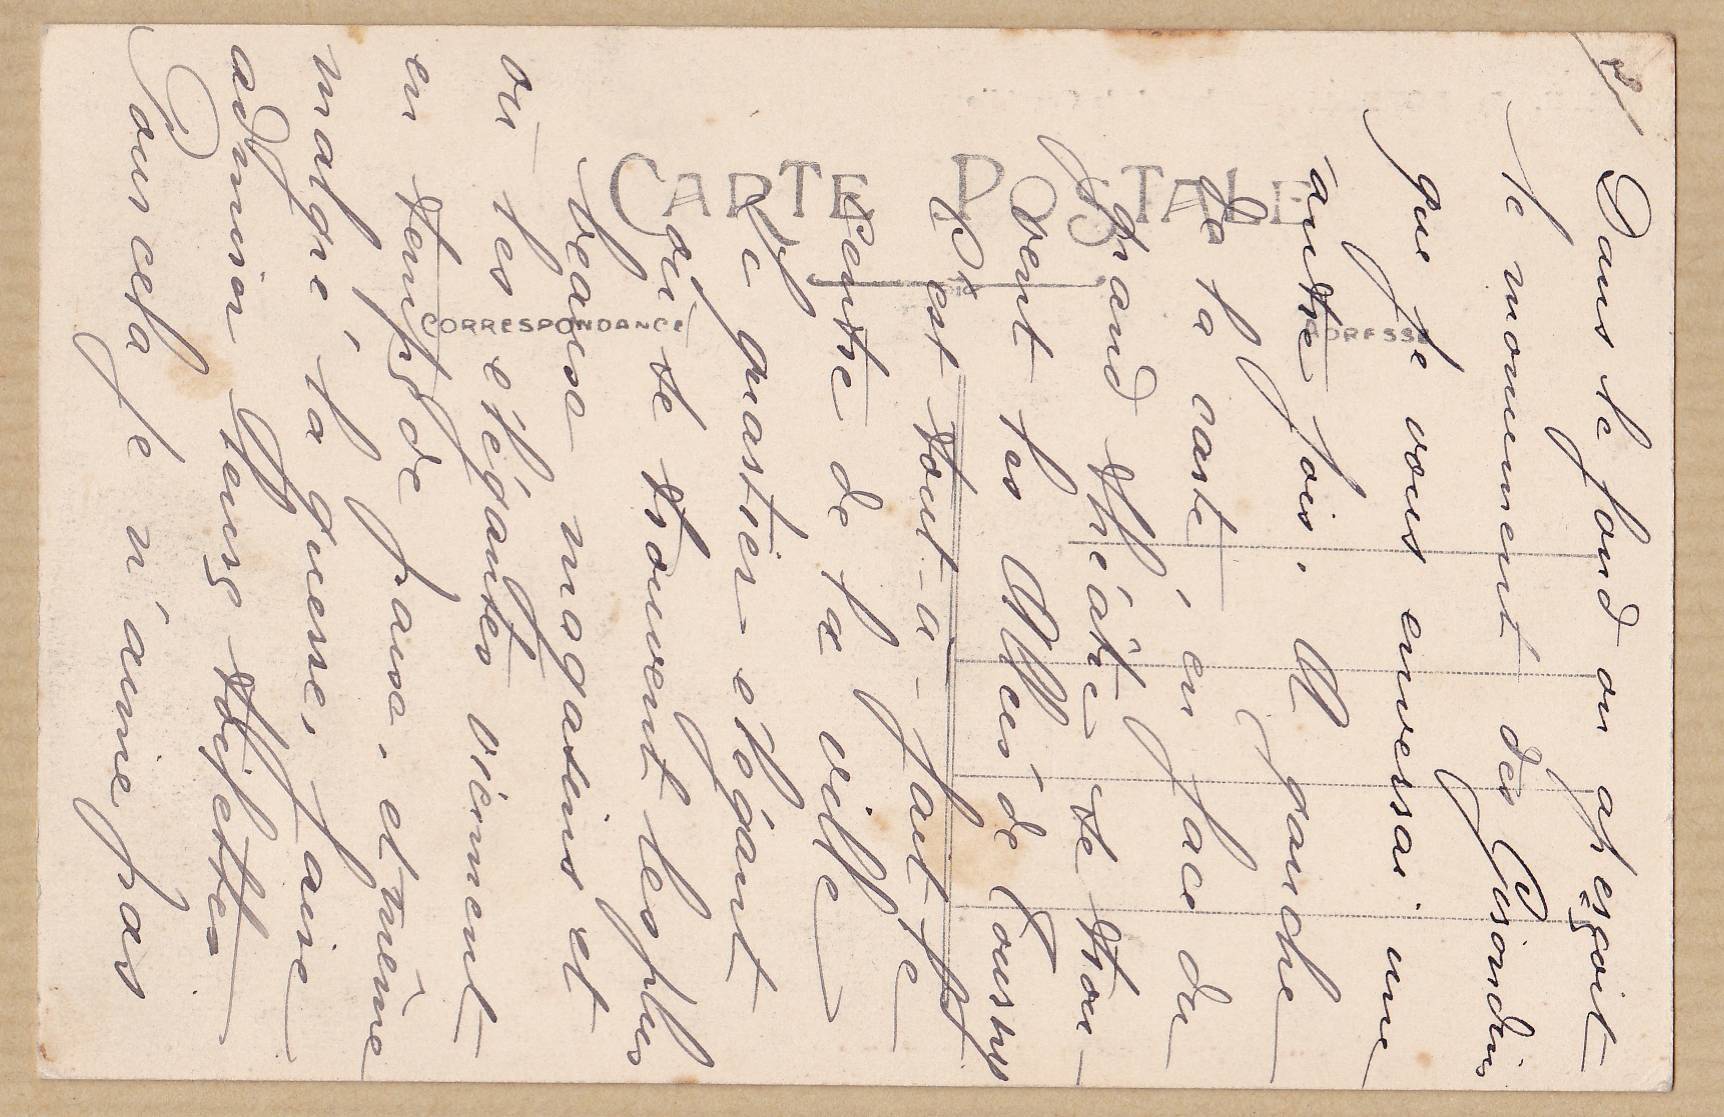 2/
Dans le fond on aperçoit
le monument des Girondins
que je vous enverrai une
autre fois. A gauche
de la carte, en face du
grand théâtre se trou-
vent les Allées de Tourny
C'est tout-a-fait le
centre de la ville
le quartier élégant
où se trouvent les plus
beaux magasins et
où les élégantes viennent
en temps de paix, et même
malgré la guerre, faire
admirer leurs toilettes
Pour cela je n'aime pas
CARTE POSTALE
CORRESPONDANCE
ADRESSE